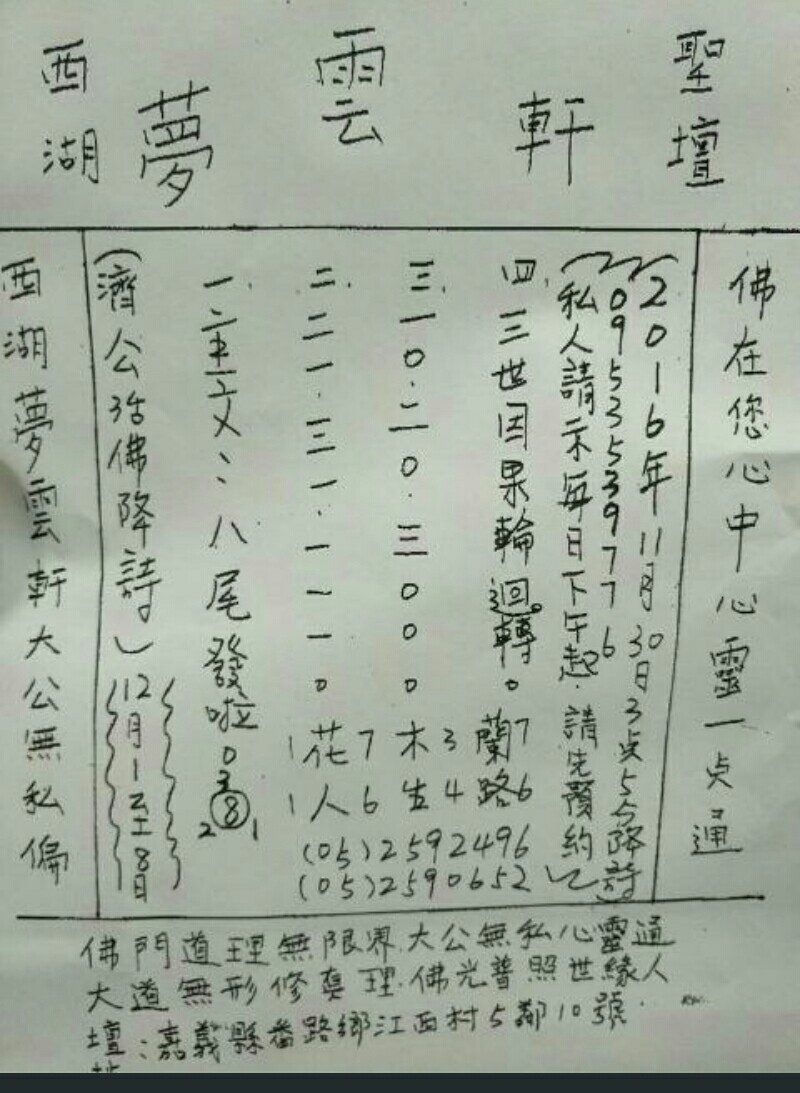 西湖 夢雲軒 聖壇
西湖夢雲軒大公無私偏
(濟公活佛降詩) 12月1至8日
一.二文:八尾發啦 0 3 ⑧ 2 1
二.二一.三一.一一一。
三.一0.二0.三000
四.三世因果輪迴轉。
1花7木3蘭7
1人6生4路6
(05)2592496
(05)2590652
(私人請示每日下午起.請先預約)
(0953539776)
(2016年11月30日3点5分降詩)
佛在您心中心靈一点通
佛門道理無限界.大公無私心靈通
大道無形修真理.佛光普照世緣人
壇:嘉義縣番路鄉江西村5鄰10號.